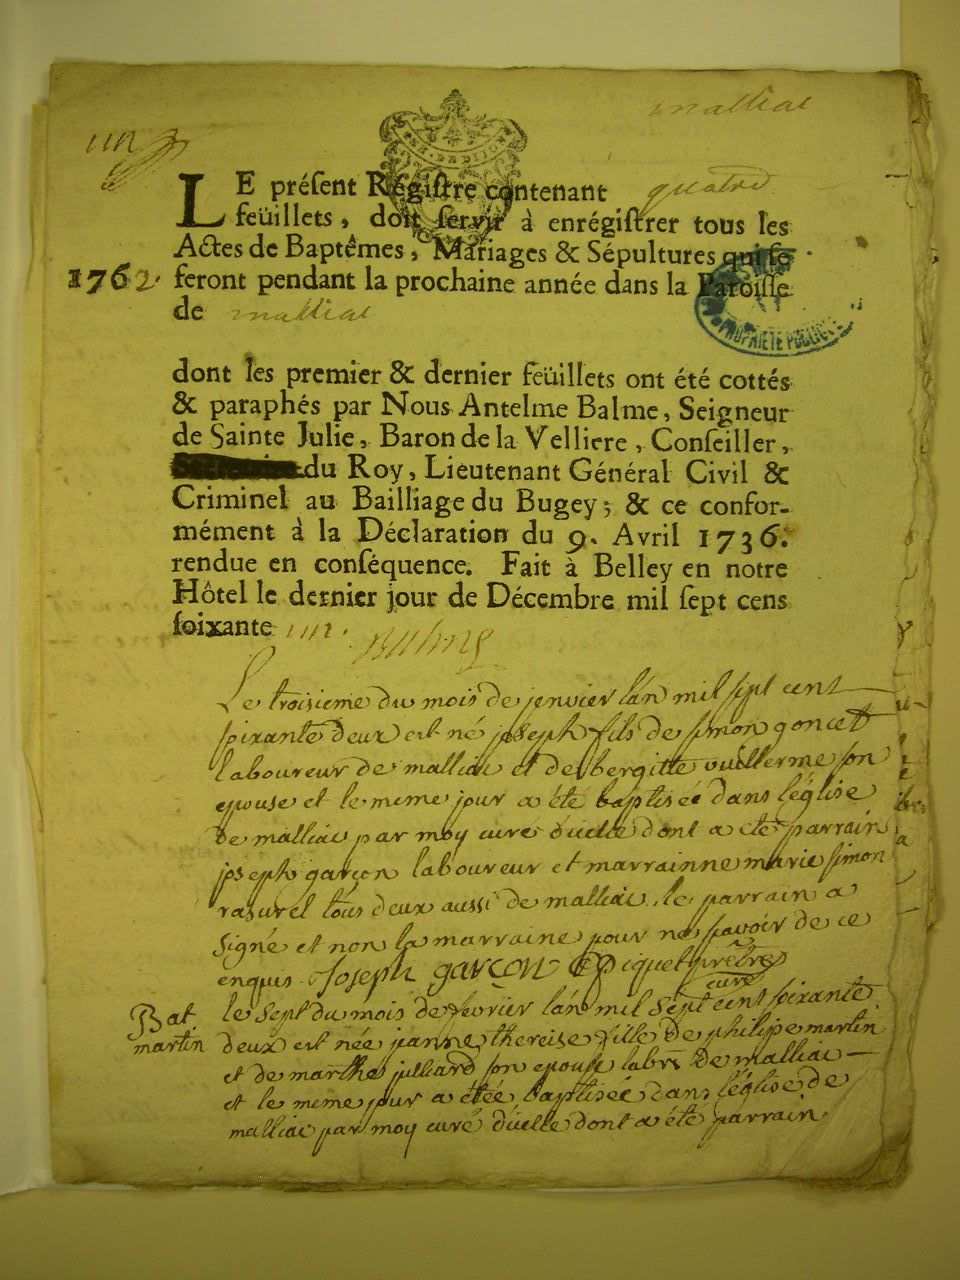 malliac
un
LE préſent Régiſtre contenant quatre
feüillets, doit ſervir à enrégiſtrer tous les
Actes de Baptêmes, Mariages & Sépultures qui ſe
1762. feront pendant la prochaine année dans la Paroiſſe
de malliac
PROPRIETE PUBLIQUE
dont les premier & dernier feüillets ont été cottés
& paraphés par Nous Antelme Balme, Seigneur
de Sainte Julie, Baron de la Velliere, Conſeiller,
du Roy, Lieutenant Général Civil &
Criminel au Bailliage du Bugey; & ce confor-
mément à la Déclaration du 9. Avril 1736.
rendue en conſéquence. Fait à Belley en notre
Hôtel le dernier jour de Décembre mil ſept cens
ſoixante un. Balme
Le troisieme du mois de jenvier lán mil sept cent
soixante deux est né joseph fils de simon goncet
laboureur de malliac et de bergitte vuillerme son
epouse et le meme jour a été baptiseé dans léglise
de malliac par moy curé d'icelle dont a eté parrain
joseph garçon laboureur et marrainne marie simon
rasurel tous deux aussi de malliac. le parrain a
signé et non la marraine pour ne savoir de ce
enquis. Joseph garçon Picquet prêtre
curé
Bat. le sept du mois de fevrier lán mil sept cent soixante
martin deux est née janne thereise fille de philipe martin
et de marthe julliard son epouse labr de malliac
et le meme jour a étée baptiseé dans léglise de
malliac par moy curé d'icelle dont a été parrain